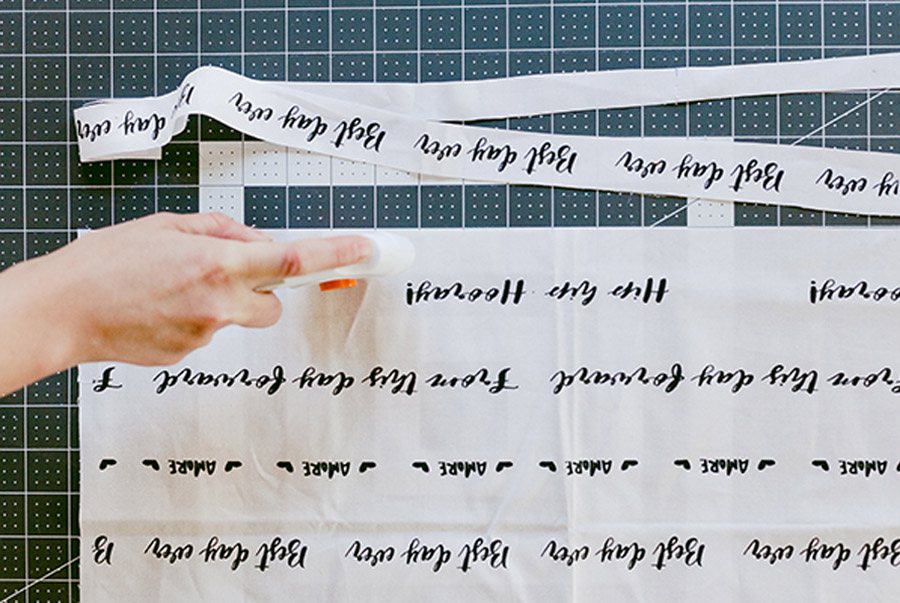 ay ever Best day ever Best day ever Best day ever day ever
ooray! Hip hip Hooray!
From this day forward From this day forward F
AMORE AMORE AMORE AMORE AMORE AMORE
Best day ever Best day ever Best day ever Best day ever B